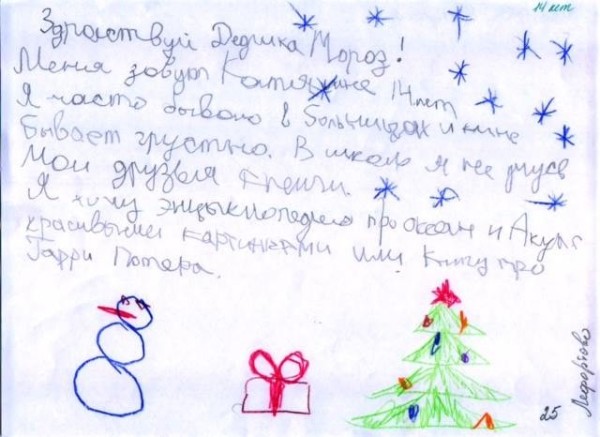 14 лет
Здравствуй Дедушка Мороз!
Меня зовут Катя мне 14 лет
Я часто бываю в больницах и мне
бывает грустно. В школе я не учусь
Мои друзья книги.
Я хочу энцыклопедию про океан и Акулы
красивыми картинками или книгу про
Гарри Потера.
Лефортово
25